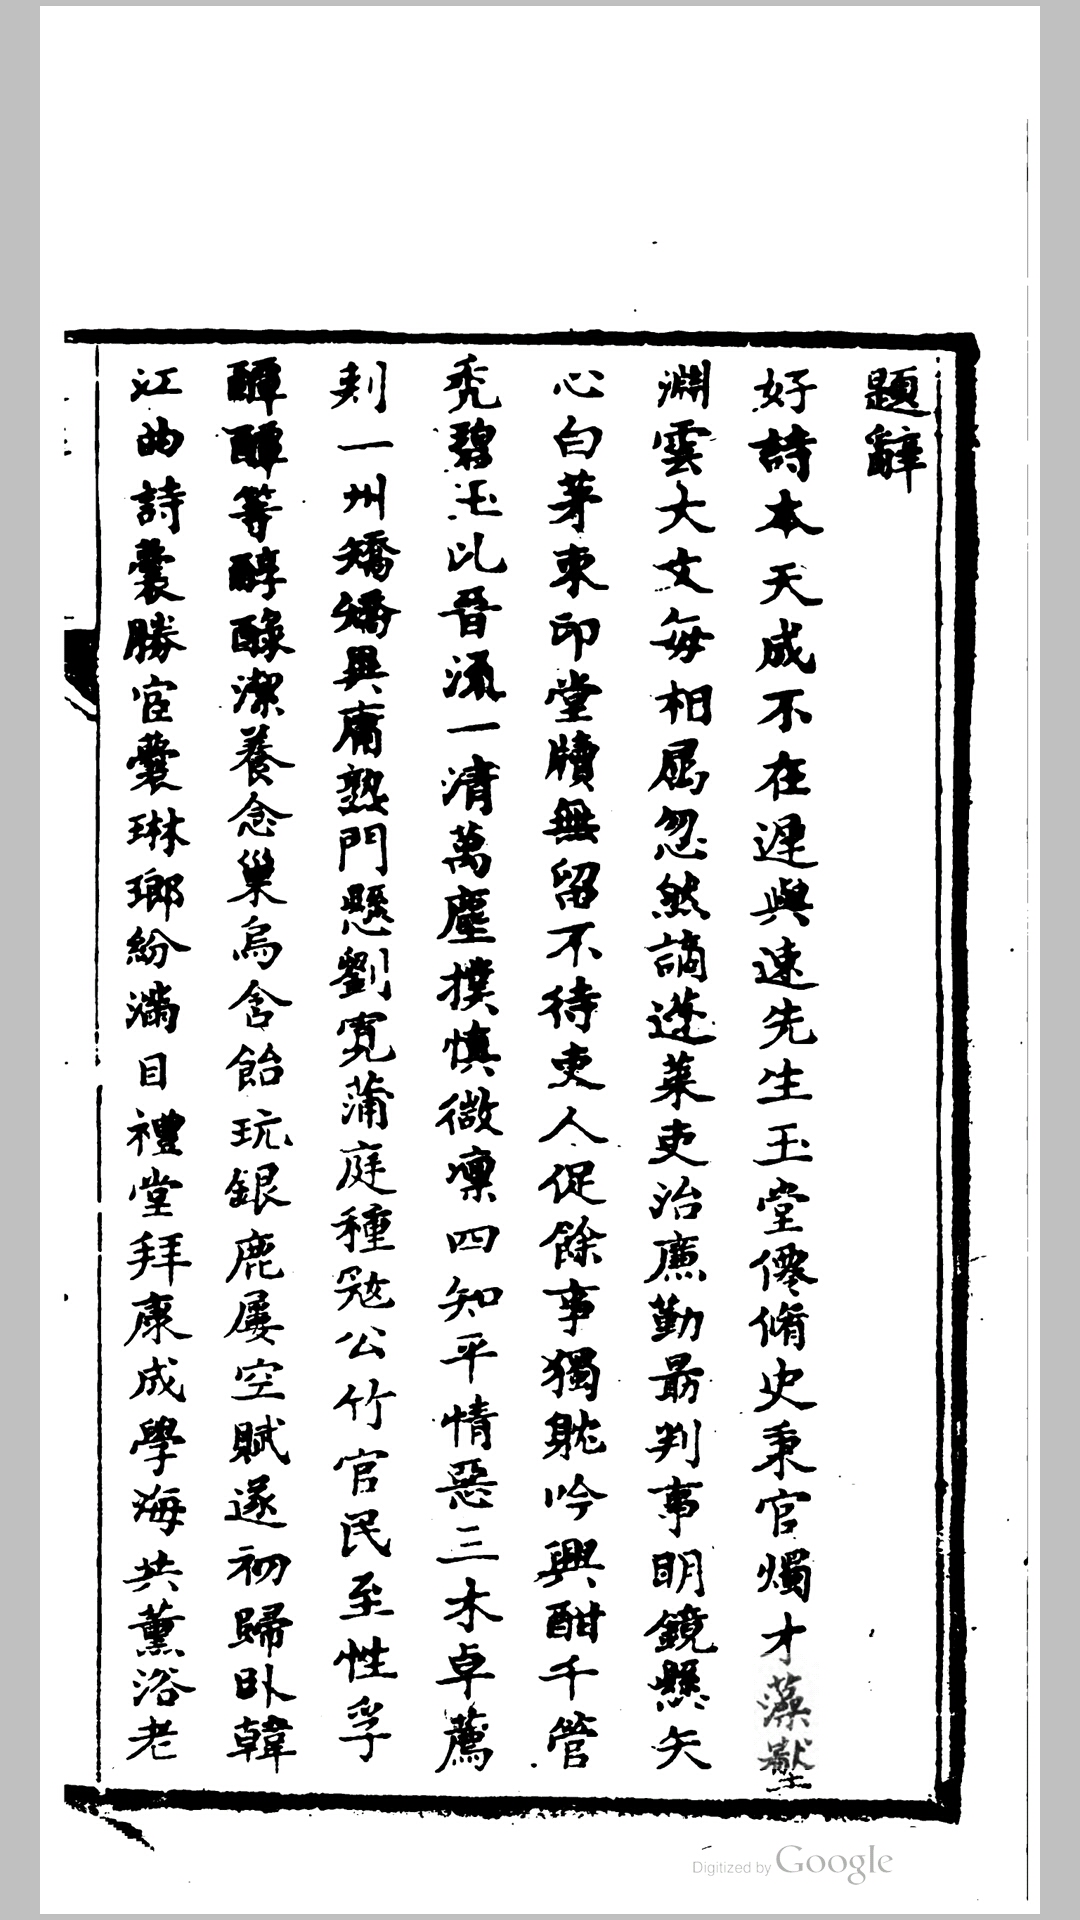 題辭
好詩本天成不在遲與速先生玉堂僊脩史秉官燭才藻壑
淵雲大文每相屬忽然謫蓬萊吏治廉勤最判事明鏡懸矢
心白茅束印堂牘無留不待吏人促餘事獨躭吟興酣千管
禿碧玉比晉涌一清萬塵撲慎微凜四知平情惡三木卓薦
剡一州矯矯異庸熟門懸劉寬蒲庭種寇公竹官民至性孚
醰醰等醇醁潔養念巢烏含飴玩銀鹿屢空賦遂初歸臥韓
江曲詩囊勝宦囊琳瑯紛滿目禮堂拜康成學海共薰浴老
Digitized by Google